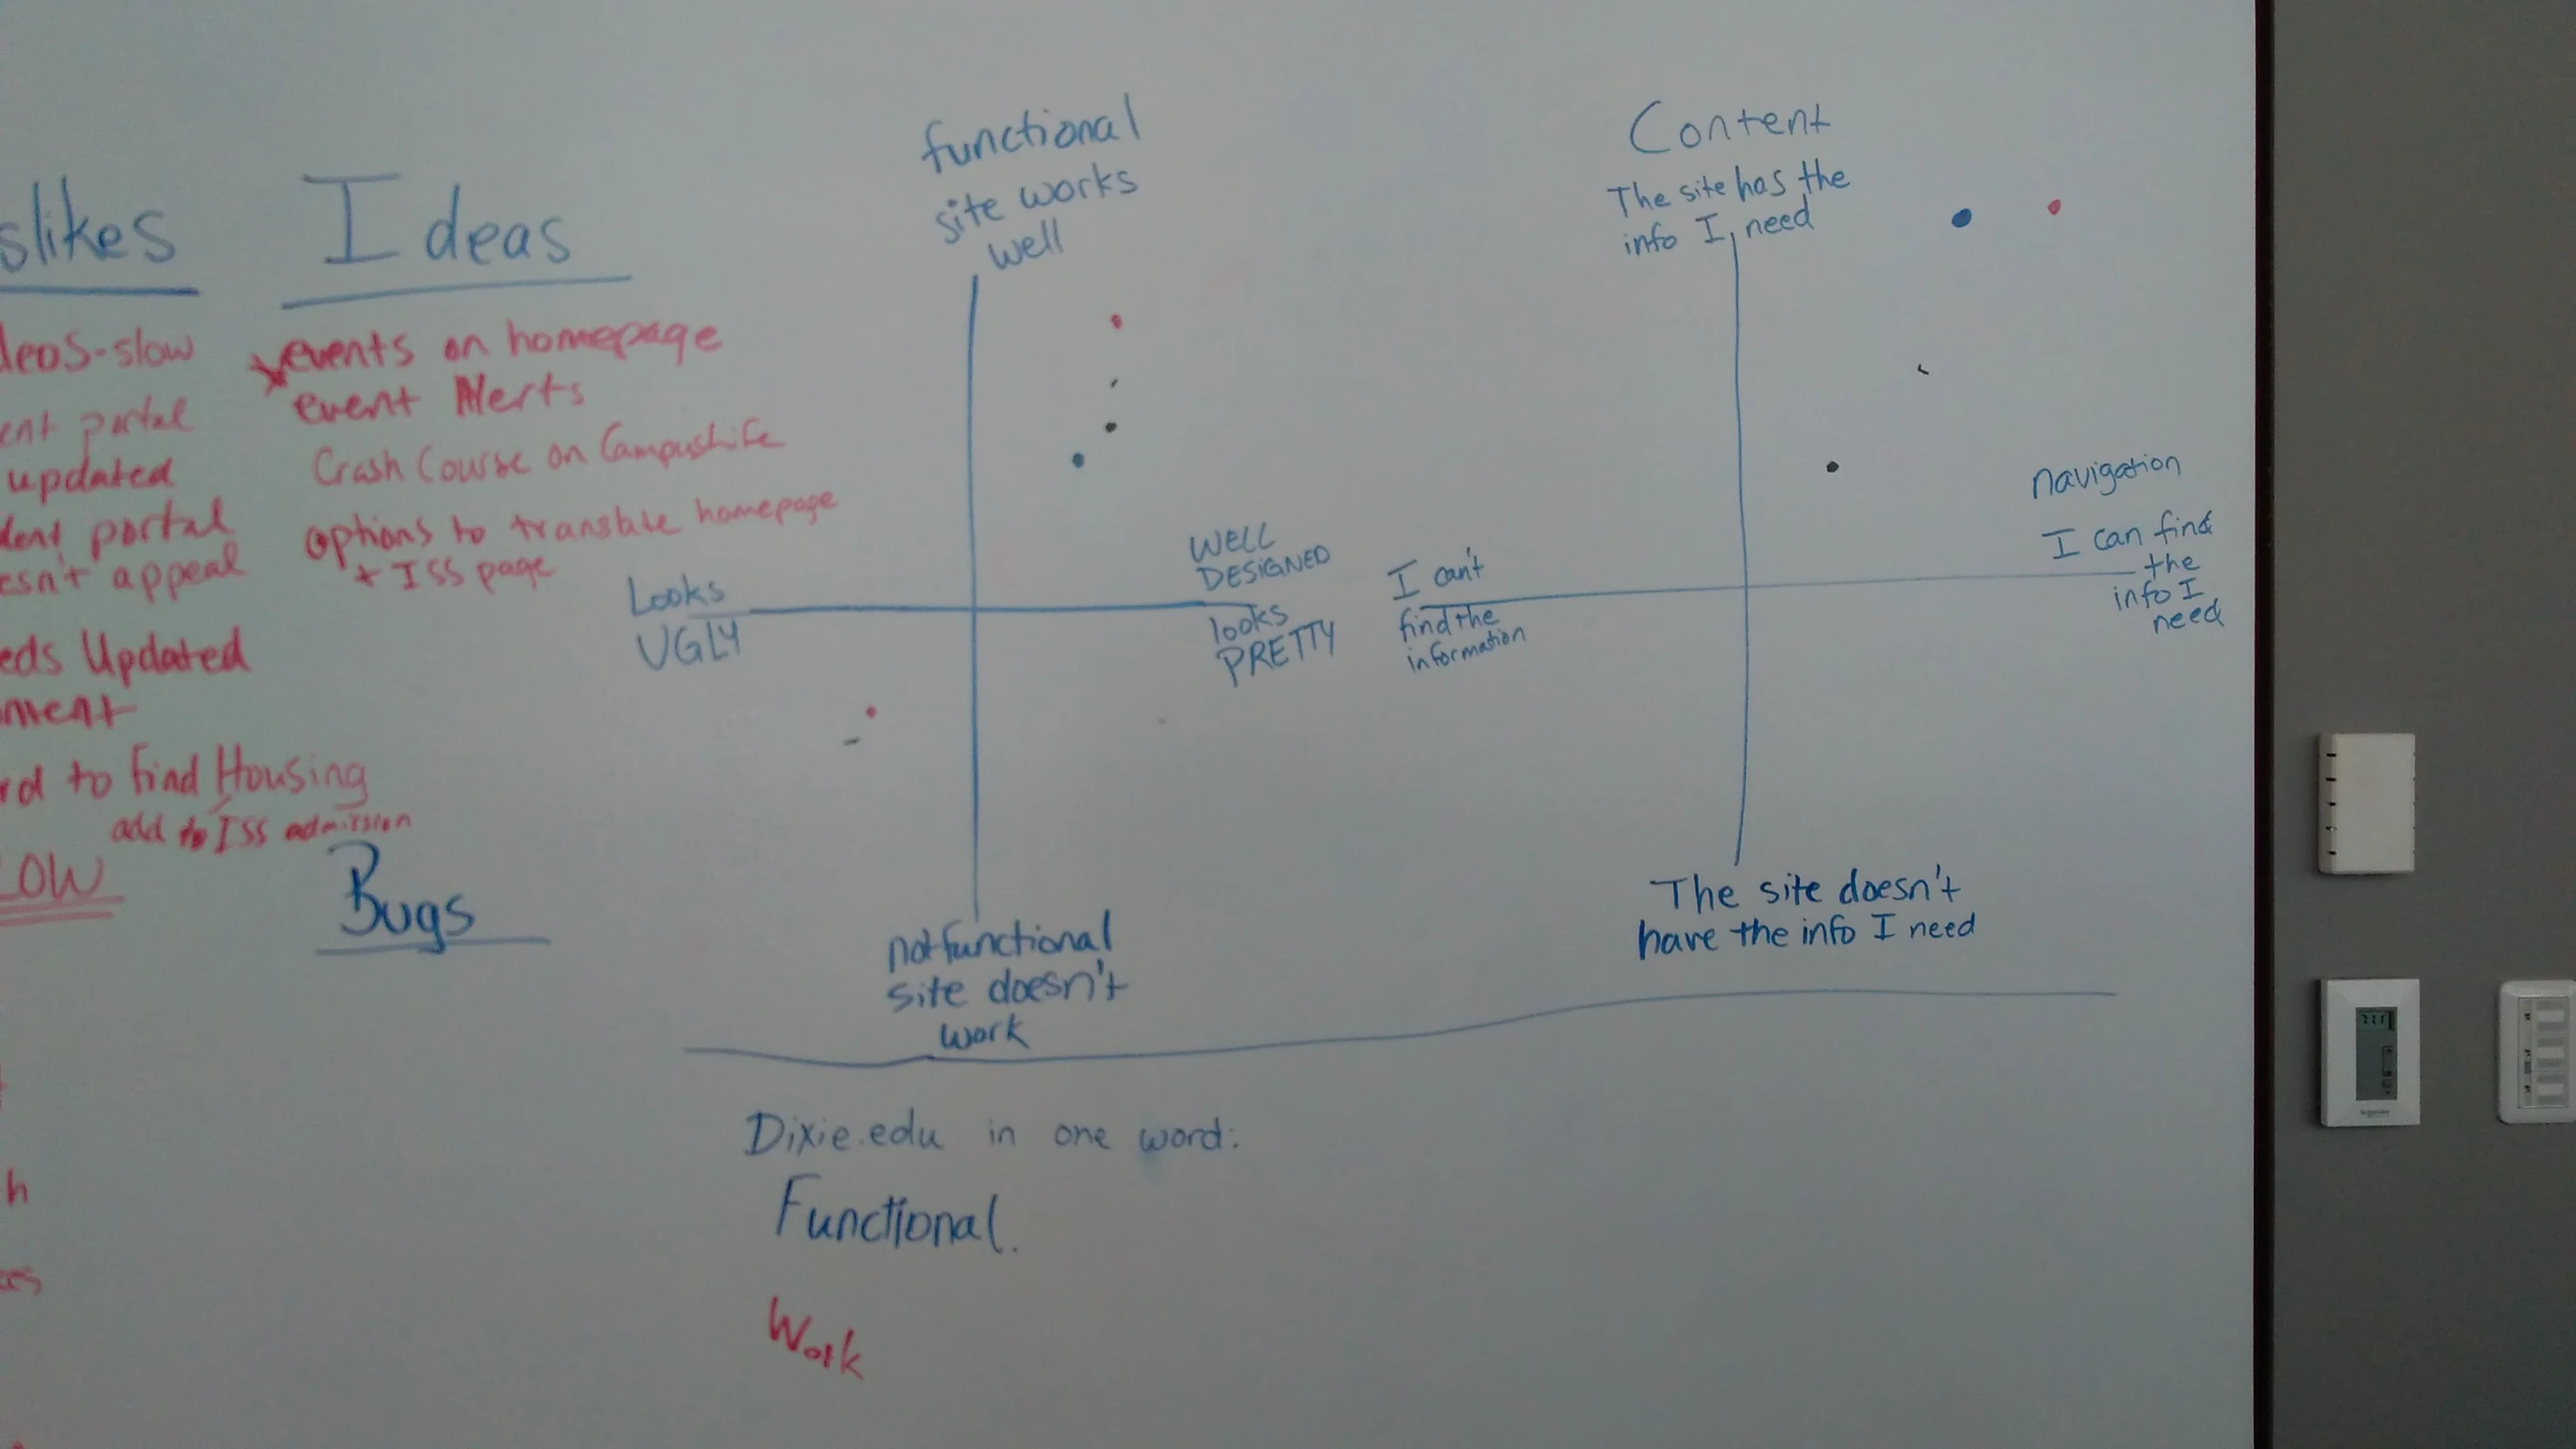 slikes
deos-slow
ent portal
updated
dent portal
esn't appeal
eds Updated
ment
rd to find Housing
add to ISS admission
LOW
h
Ideas
events on homepage
event Alerts
Crash Course on Campus Life
options to translate homepage
+ ISS page
Bugs
functional
site works
well
Looks
UGLY
WELL
DESIGNED
looks
PRETTY
not functional
site doesn't
work
Content
The site has the
info I need
I can't
find the
information
navigation
I can find
the
info I
need
The site doesn't
have the info I need
Dixie.edu in one word:
Functional.
Work